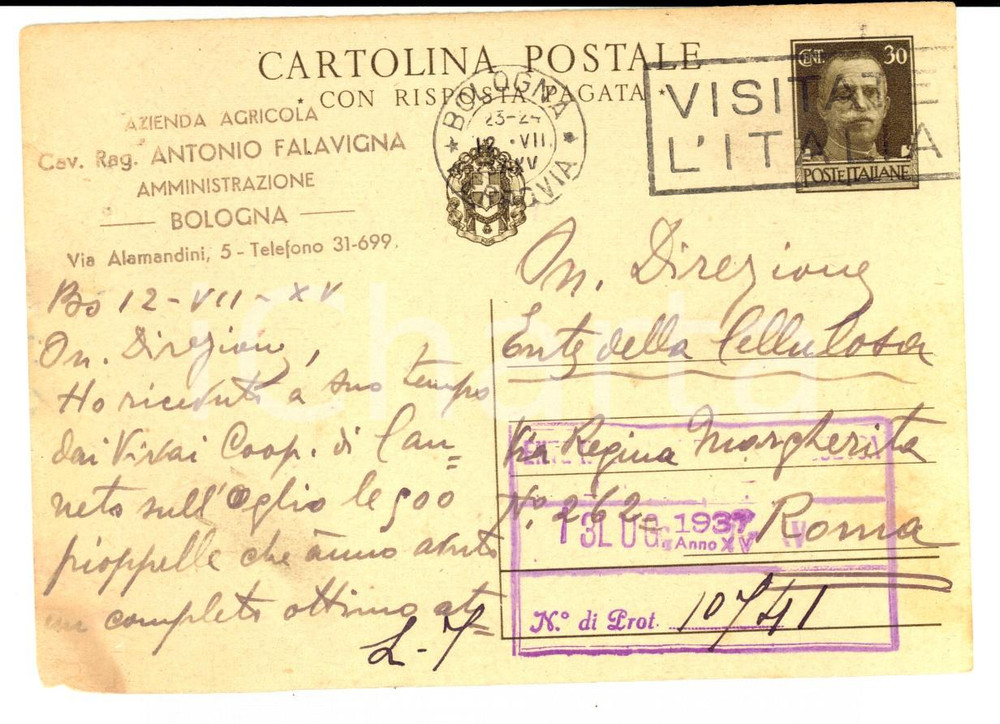 CARTOLINA POSTALE
CON RISPOSTA PAGATA
CENT. 30
POSTE ITALIANE
VISITATE
L'ITALIA
BOLOGNA
23-24
12 VII
XV
FERROVIA
AZIENDA AGRICOLA
Cav. Rag. ANTONIO FALAVIGNA
AMMINISTRAZIONE
BOLOGNA
Via Alamandini, 5 - Telefono 31-699.
Bo 12-VII-XV
On. Direzione,
Ho ricevuto a suo tempo
dai Vivai Coop. di Can=
neto sull'Oglio le 500
pioppelle che ànno avuto
un completo ottimo at=
On. Direzione
Ente della Cellulosa
Via Regina Margherita
N.° 262
Roma
13 LUG. 1937
Anno XV
N.° di Prot. 10741
iCharta